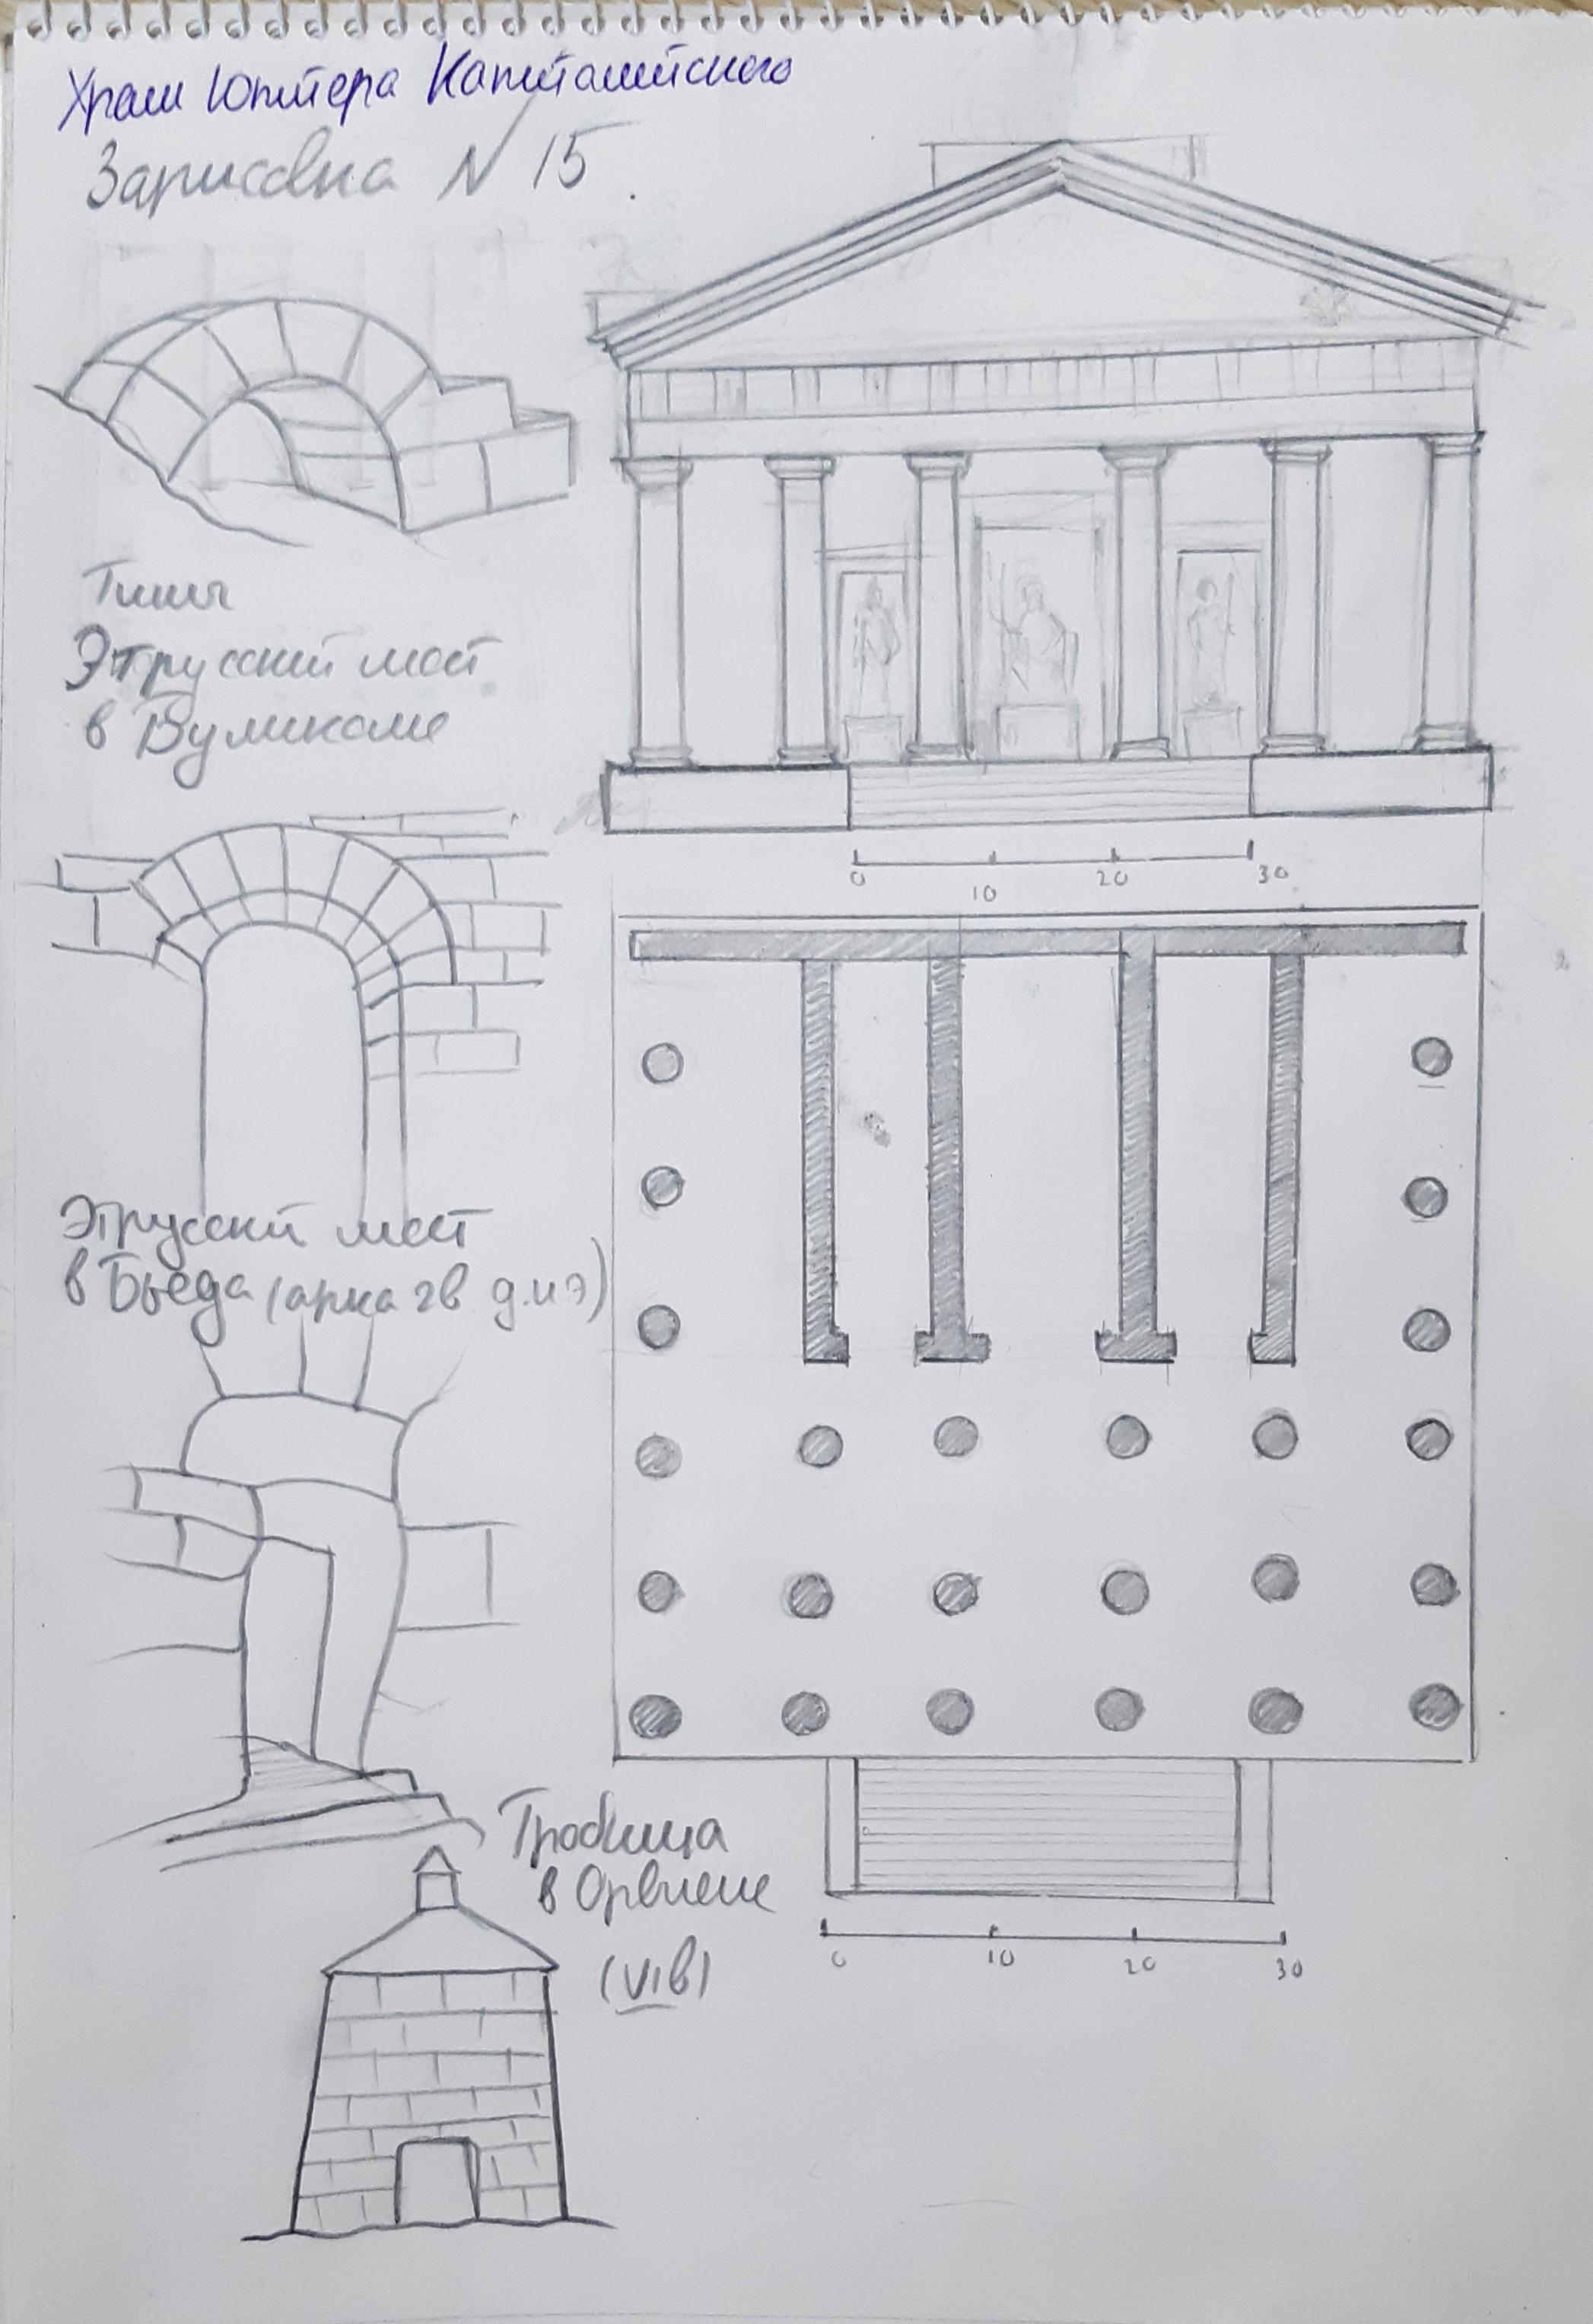 Храм Юпитера Капиталийского
Зарисовка N 15
Типы
Этрусский мост
в Вуликаме
0 10 20 30
Этрусский мост
в Бьеда (арка 2в д.н.э)
Гробница
в Орвиене
(VIв)
0 10 20 30